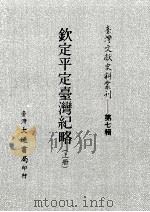 臺灣文獻史料叢刊
第七輯
欽定平定臺灣紀略
(上冊)
臺灣大通書局印行